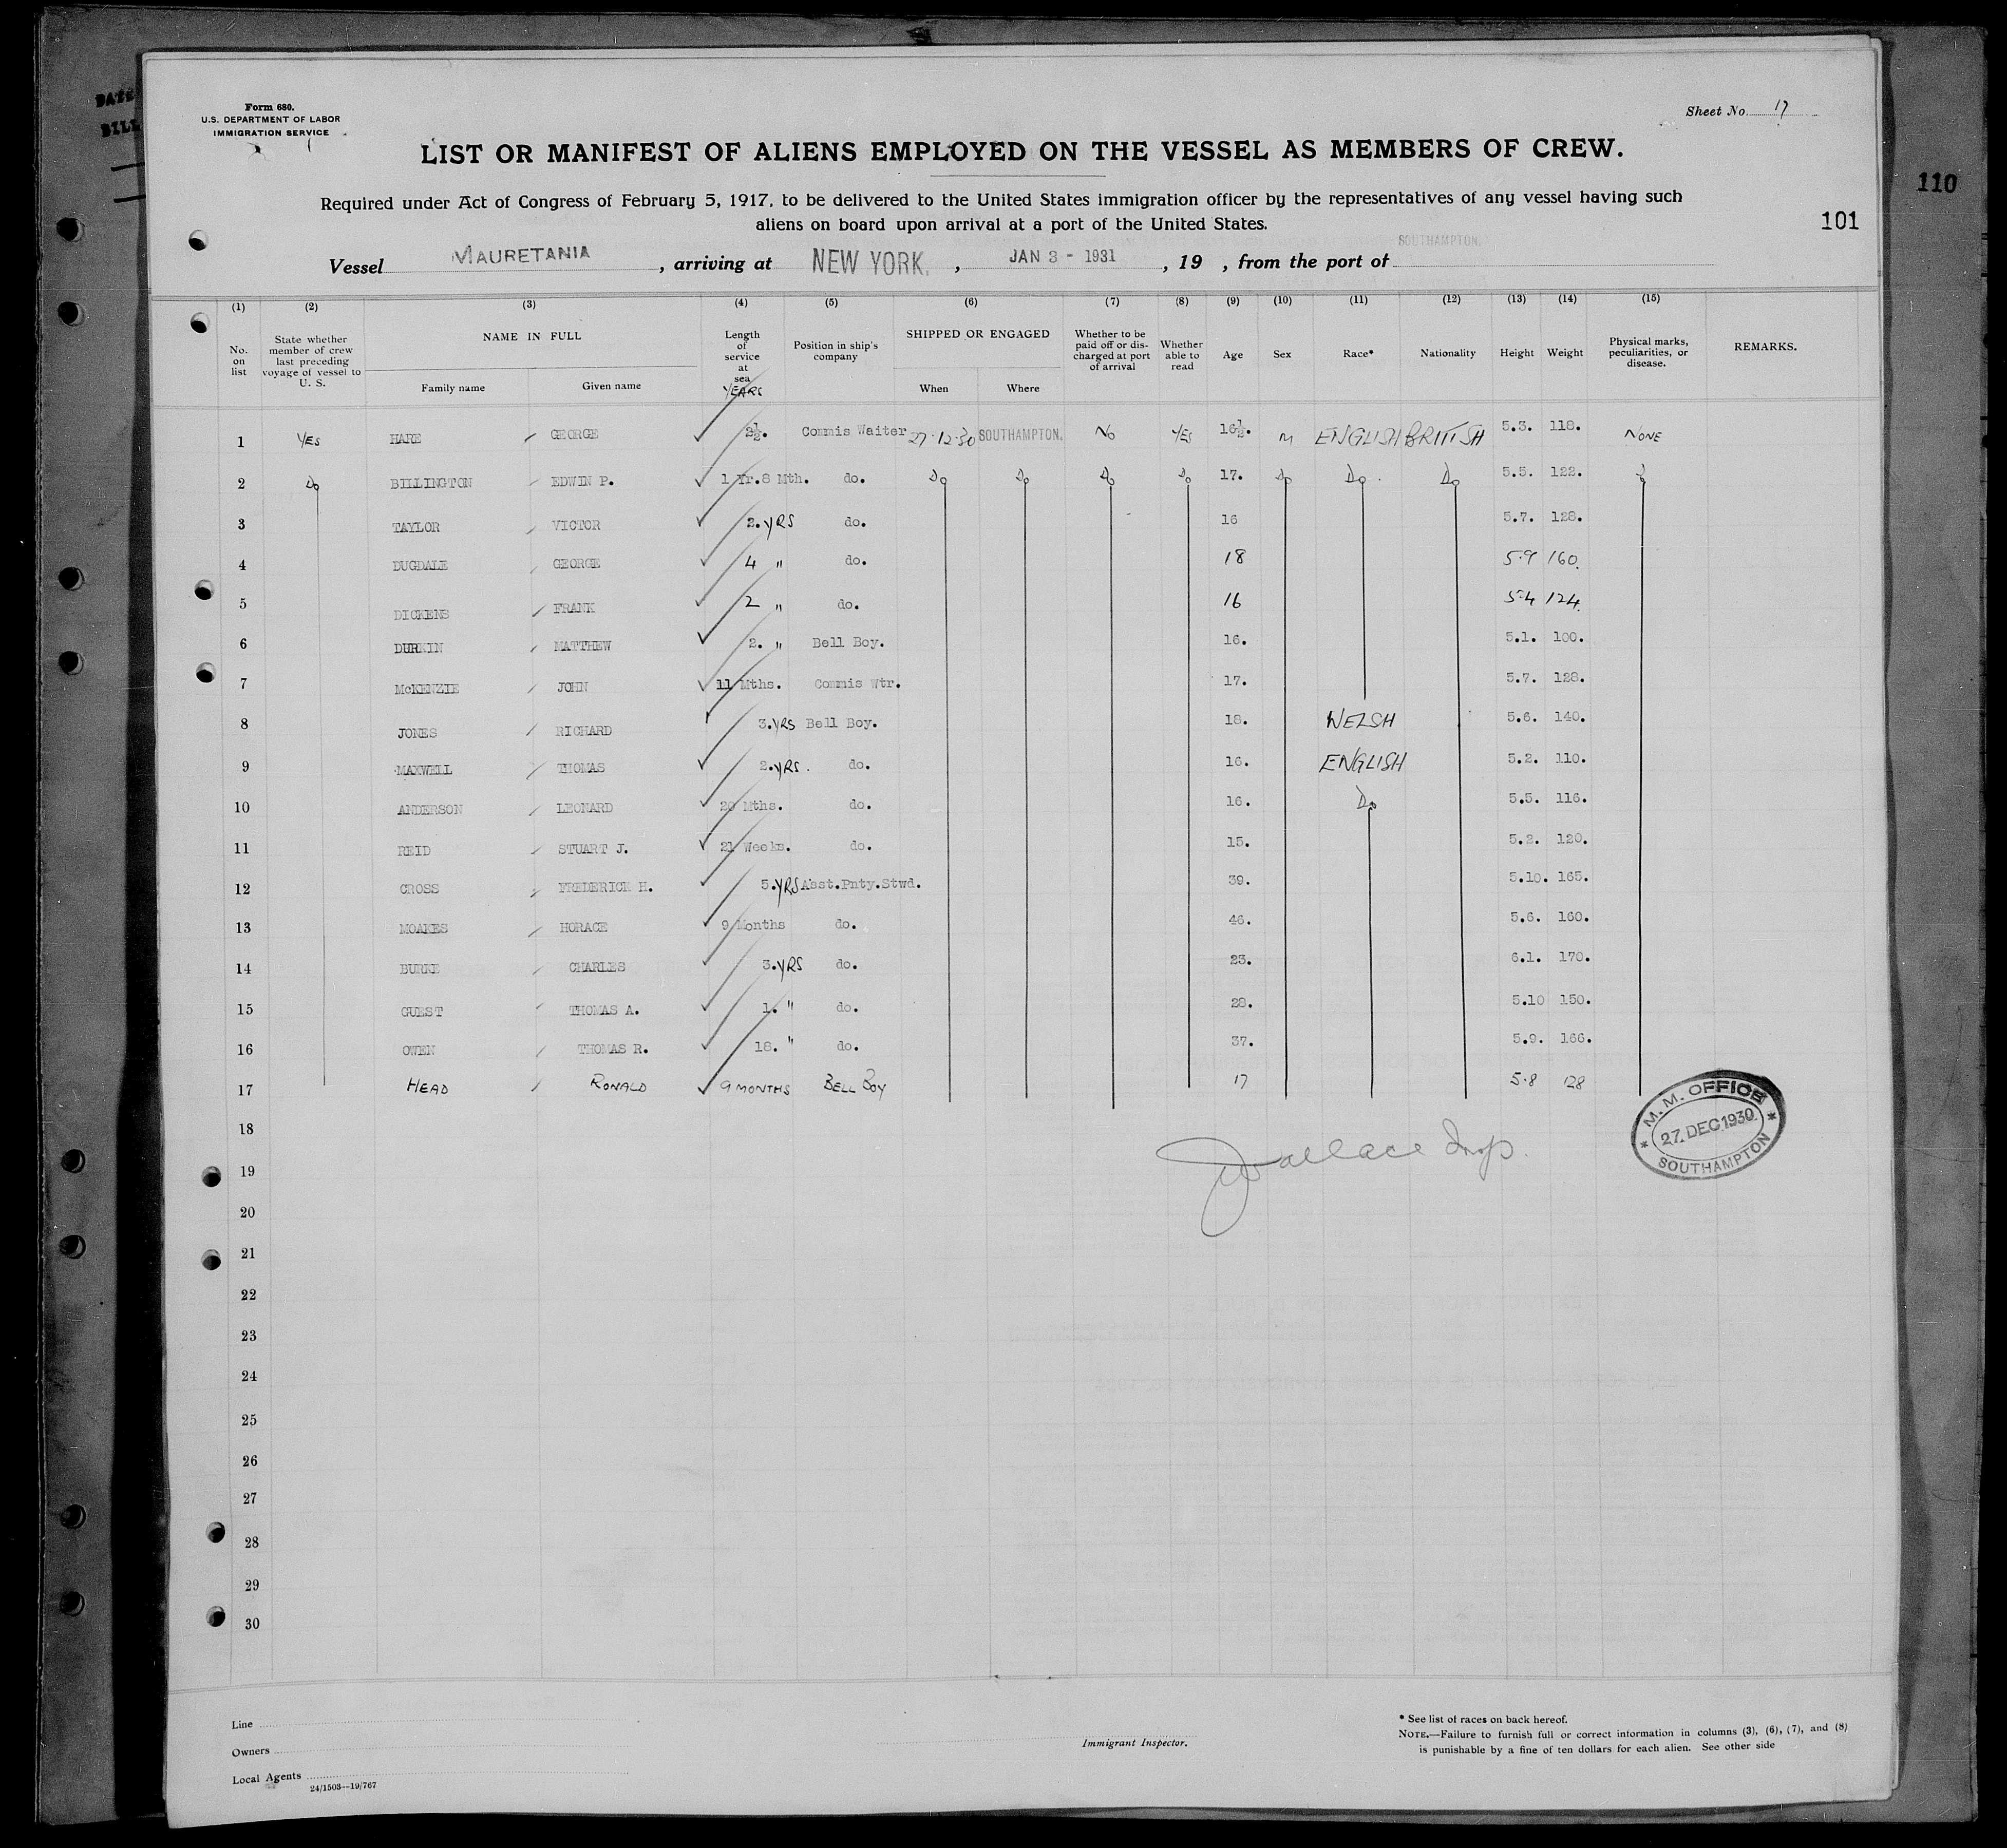 DATE
BILL
Form 680.
U.S. DEPARTMENT OF LABOR
IMMIGRATION SERVICE
Sheet No. 17
LIST OR MANIFEST OF ALIENS EMPLOYED ON THE VESSEL AS MEMBERS OF CREW.
110
Required under Act of Congress of February 5, 1917, to be delivered to the United States immigration officer by the representatives of any vessel having such
aliens on board upon arrival at a port of the United States.
101
Vessel MAURETANIA, arriving at NEW YORK, JAN 3 - 1931, 19 , from the port of SOUTHAMPTON.
(1) (2) (3) (4) (5) (6) (7) (8) (9) (10) (11) (12) (13) (14) (15)
No. on list
State whether member of crew last preceding voyage of vessel to U. S.
NAME IN FULL
Family name
Given name
Length of service at sea
YEARS
Position in ship's company
SHIPPED OR ENGAGED
When
Where
Whether to be paid off or discharged at port of arrival
Whether able to read
Age
Sex
Race*
Nationality
Height
Weight
Physical marks, peculiarities, or disease.
REMARKS.
1 YES HARE GEORGE 2½. Commis Waiter 27.12.30 SOUTHAMPTON. No YES 16½. M ENGLISH BRITISH 5.3. 118. NONE
2 Do BILLINGTON EDWIN P. 1 Yr.8 Mth. do. Do Do Do Do 17. Do Do. Do 5.5. 122. Do
3 TAYLOR VICTOR 2. YRS do. 16 5.7. 128.
4 DUGDALE GEORGE 4 " do. 18 5.9 160.
5 DICKENS FRANK 2 " do. 16 5.4 124.
6 DURKIN MATTHEW 2. " Bell Boy. 16. 5.1. 100.
7 McKENZIE JOHN 11 Mths. Commis Wtr. 17. 5.7. 128.
8 JONES RICHARD 3. YRS Bell Boy. 18. WELSH 5.6. 140.
9 MAXWELL THOMAS 2. YRS. do. 16. ENGLISH 5.2. 110.
10 ANDERSON LEONARD 20 Mths. do. 16. Do 5.5. 116.
11 REID STUART J. 21 Weeks. do. 15. 5.2. 120.
12 CROSS FREDERICK H. 5. YRS Asst.Pnty.Stwd. 39. 5.10. 165.
13 MOAKES HORACE 9 Months do. 46. 5.6. 160.
14 BURKE CHARLES 3. YRS do. 23. 6.1. 170.
15 GUEST THOMAS A. 1. " do. 28. 5.10 150.
16 OWEN THOMAS R. 18. " do. 37. 5.9. 166.
17 HEAD RONALD 9 MONTHS BELL BOY 17 5.8 128
M. M. OFFICE
27. DEC 1930.
* SOUTHAMPTON *
18
19
20
21
22
23
24
25
26
27
28
29
30
Line
Owners
Local Agents
24/1503—19/767
Immigrant Inspector.
* See list of races on back hereof.
NOTE.—Failure to furnish full or correct information in columns (3), (6), (7), and (8)
is punishable by a fine of ten dollars for each alien. See other side